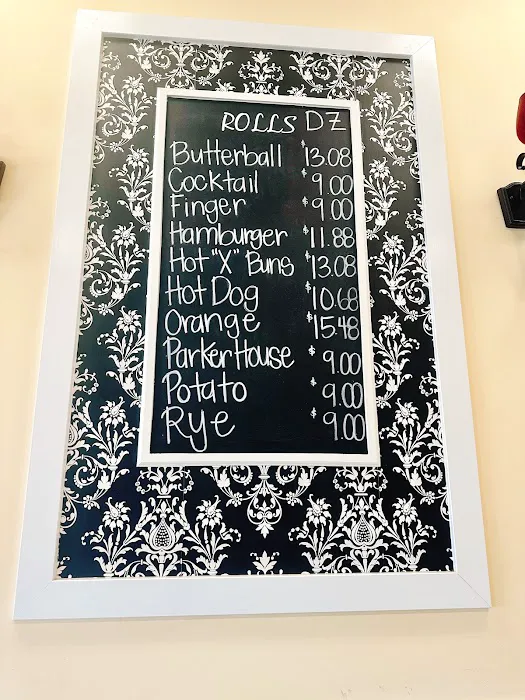 ROLLS DZ
Butterball $13.08
Cocktail $9.00
Finger $9.00
Hamburger $11.88
Hot "X" Buns $13.08
Hot Dog $10.68
Orange $15.48
Parker House $9.00
Potato $9.00
Rye $9.00